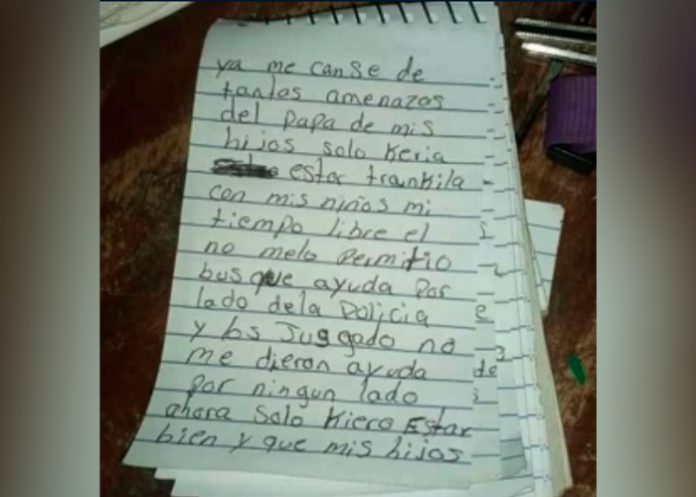 ya me canse de
tantas amenazas
del papa de mis
hijos solo keria
estar trankila
con mis niños mi
tiempo libre el
no melo permitio
busque ayuda por
lado dela policia
y los Jusgado no
me dieron ayuda
por ningun lado
ahora solo kiero Estar
bien y que mis hijos